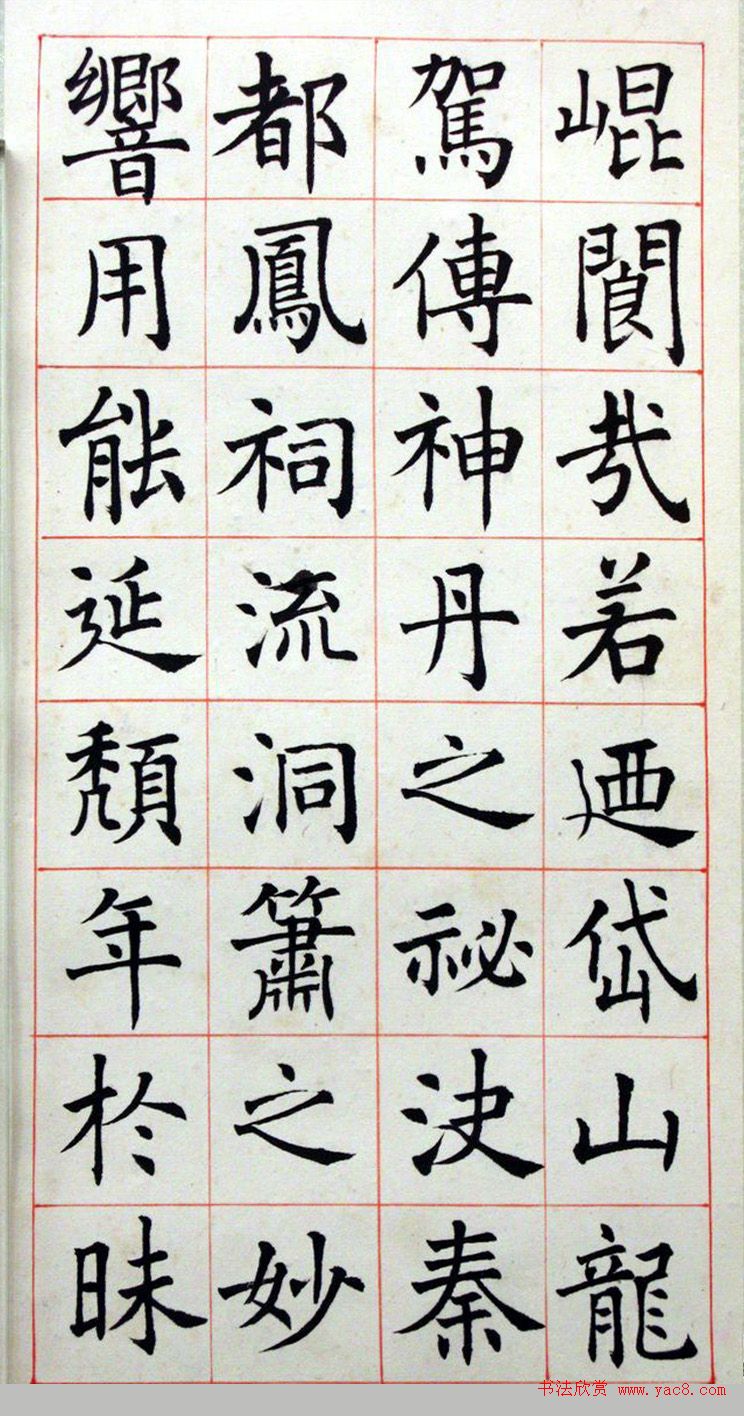 崐閬哉若迺岱山龍
駕傳神丹之祕決秦
都鳳祠流洞簫之妙
響用能延頹年於昧
书法欣赏 www.yac8.com